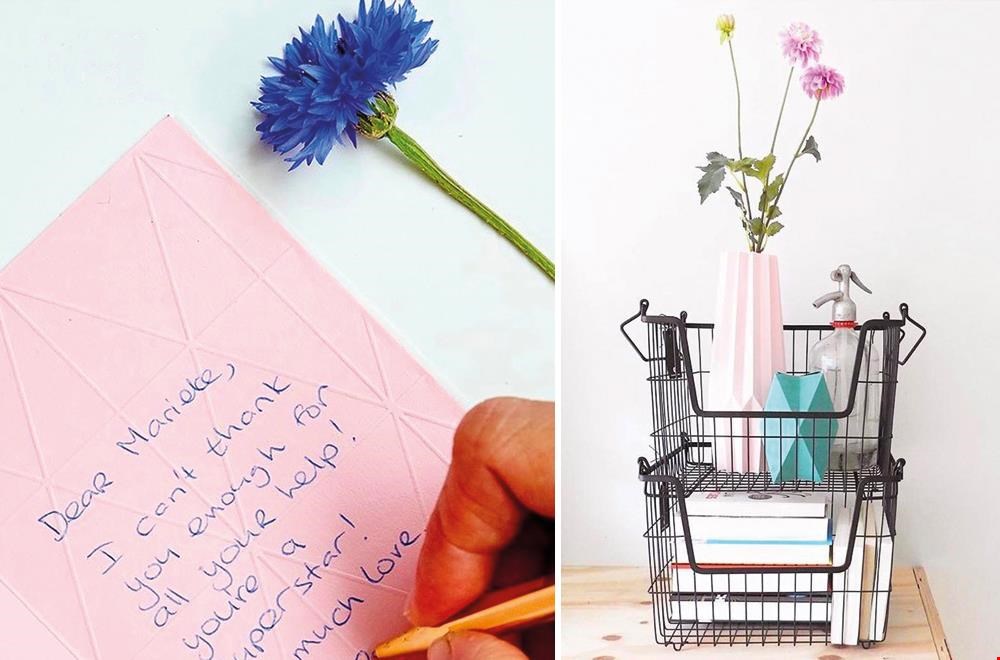 Dear Marieke,
I can't thank
you enough for
all your help!
you're a
uperstar!
much love